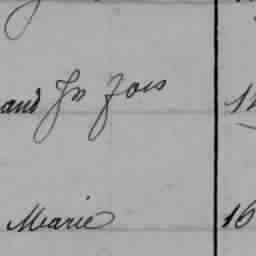 and Jn Jois
Marie 16